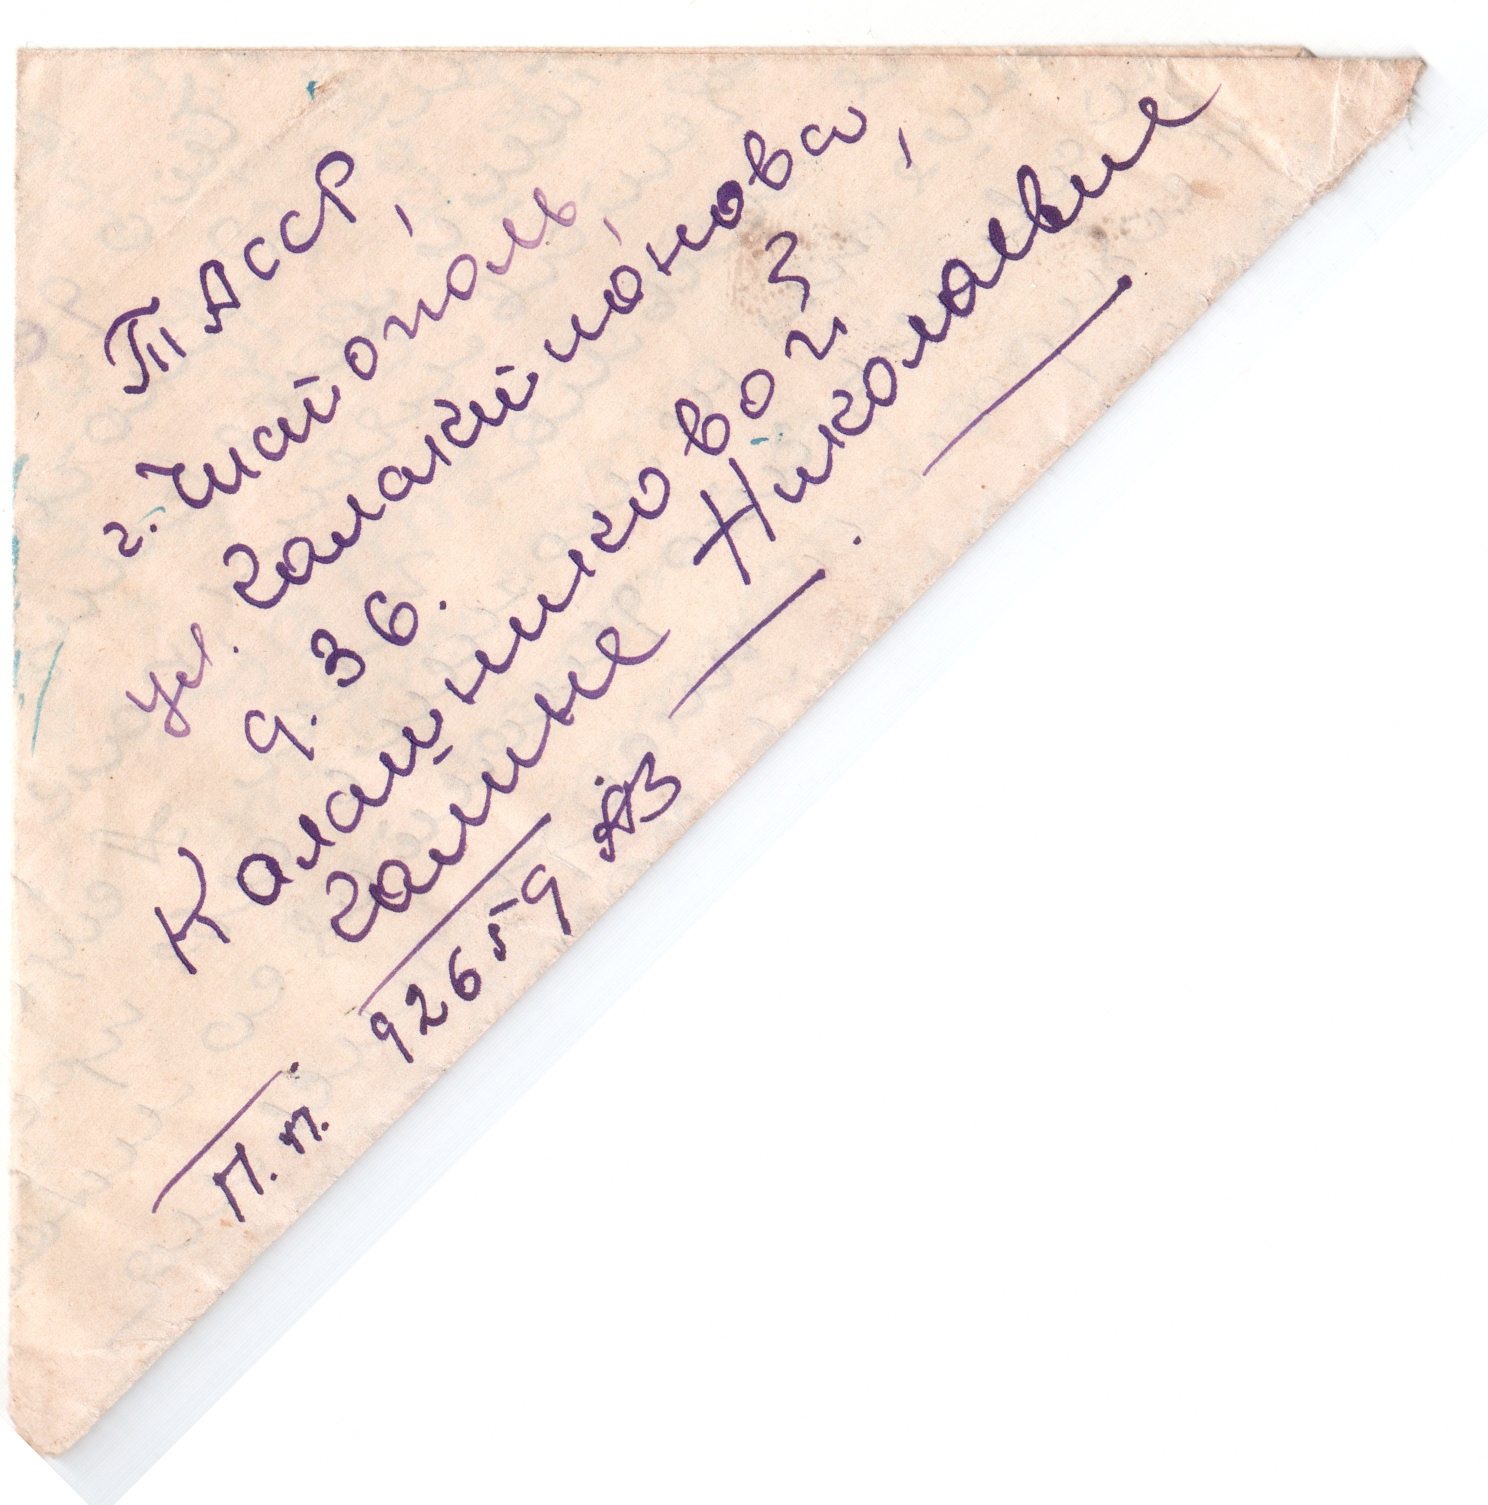 ТАССР,
г. Чистополь,
ул. Галактионова,
д. 36.
Калашниковой
Галине Николаевне
П.п. 92659